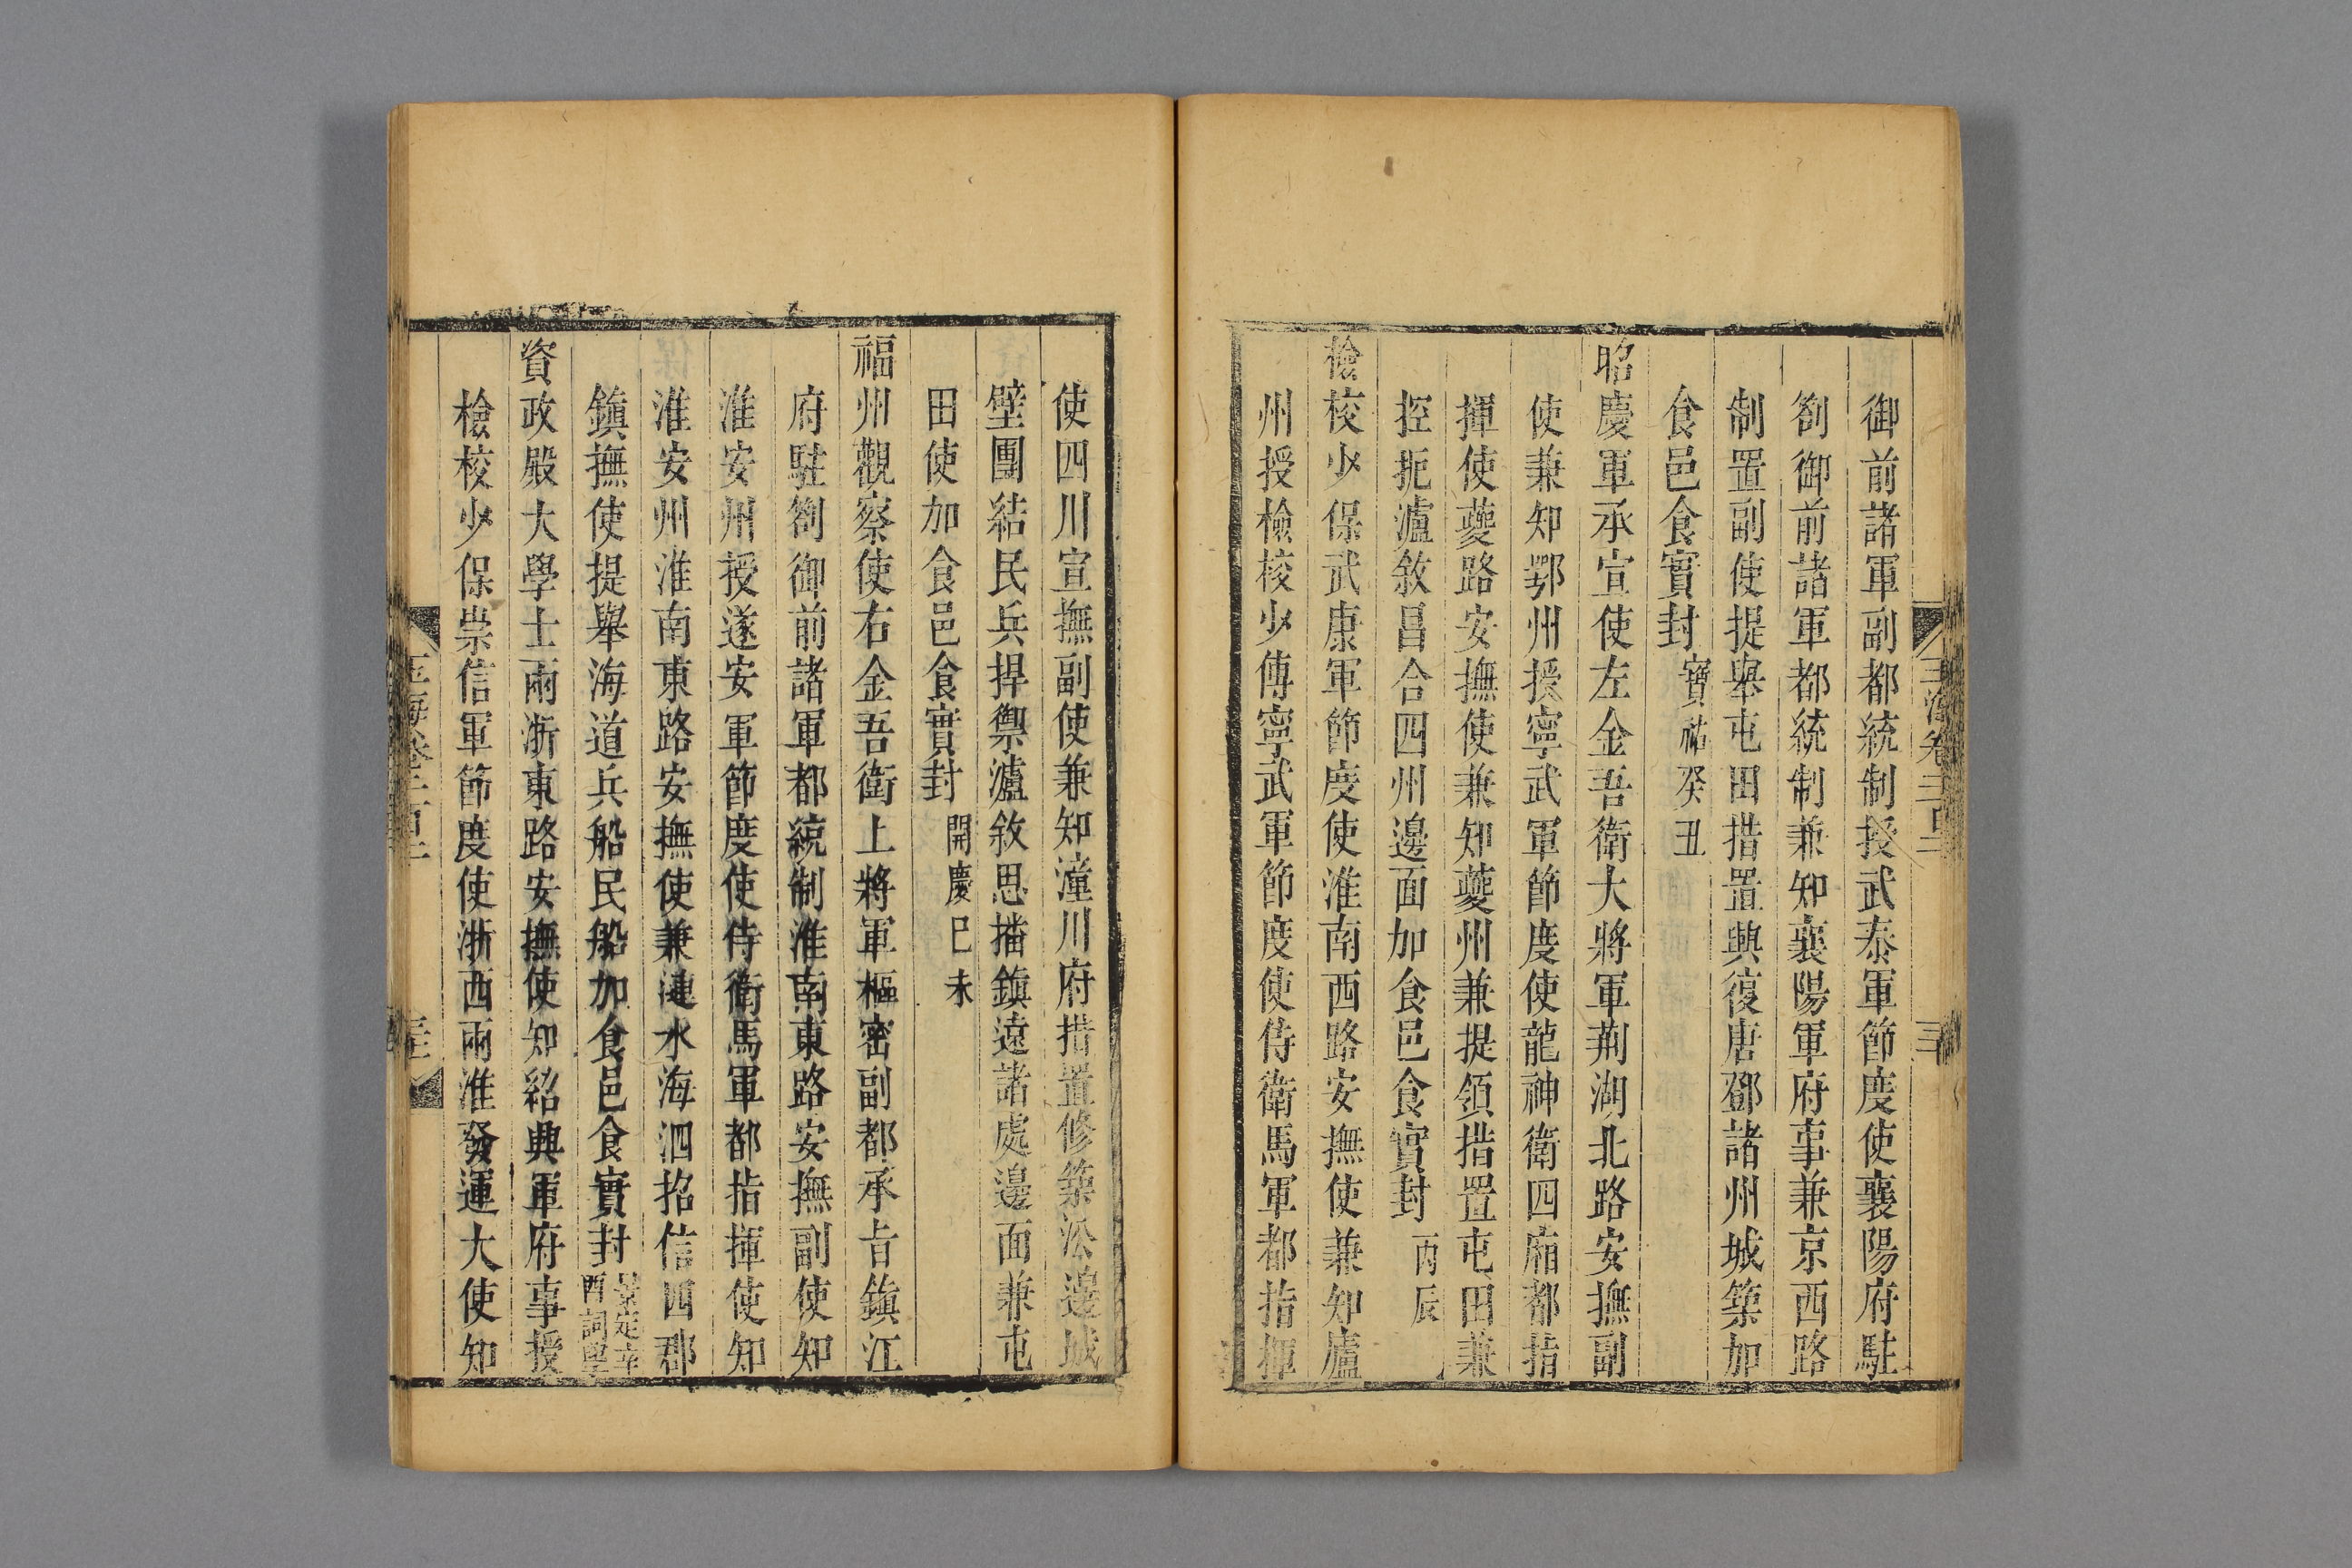 御前諸軍副都統制授武泰軍節度使襄陽府駐
劄御前諸軍都統制兼知襄陽軍府事兼京西路
制置副使提舉屯田措置興復唐鄧諸州城築加
食邑食實封寶祐癸丑
昭慶軍承宣使左金吾衛大將軍荆湖北路安撫副
使兼知鄂州授寧武軍節度使龍神衛四廂都指
揮使夔路安撫使兼知夔州兼提領措置屯田兼
控扼瀘敘昌合四州邊面加食邑食實封丙辰
檢校少保武康軍節度使淮南西路安撫使兼知廬
州授檢校少傅寧武軍節度使侍衛馬軍都指揮
使四川宣撫副使兼知潼川府措置修築沿邊城
壁團結民兵捍禦瀘敘思播鎮遠諸處邊面兼屯
田使加食邑食實封開慶己未
福州觀察使右金吾衛上將軍樞密副都承旨鎮江
府駐劄御前諸軍都統制淮南東路安撫副使知
淮安州授遂安軍節度使侍衛馬軍都指揮使知
淮安州淮南東路安撫使兼漣水海泗招信四郡
鎮撫使提舉海道兵船民船加食邑食實封景定辛
酉詞學
資政殿大學士兩浙東路安撫使知紹興軍府事授
檢校少保崇信軍節度使浙西兩淮發運大使知
玉海卷二百三